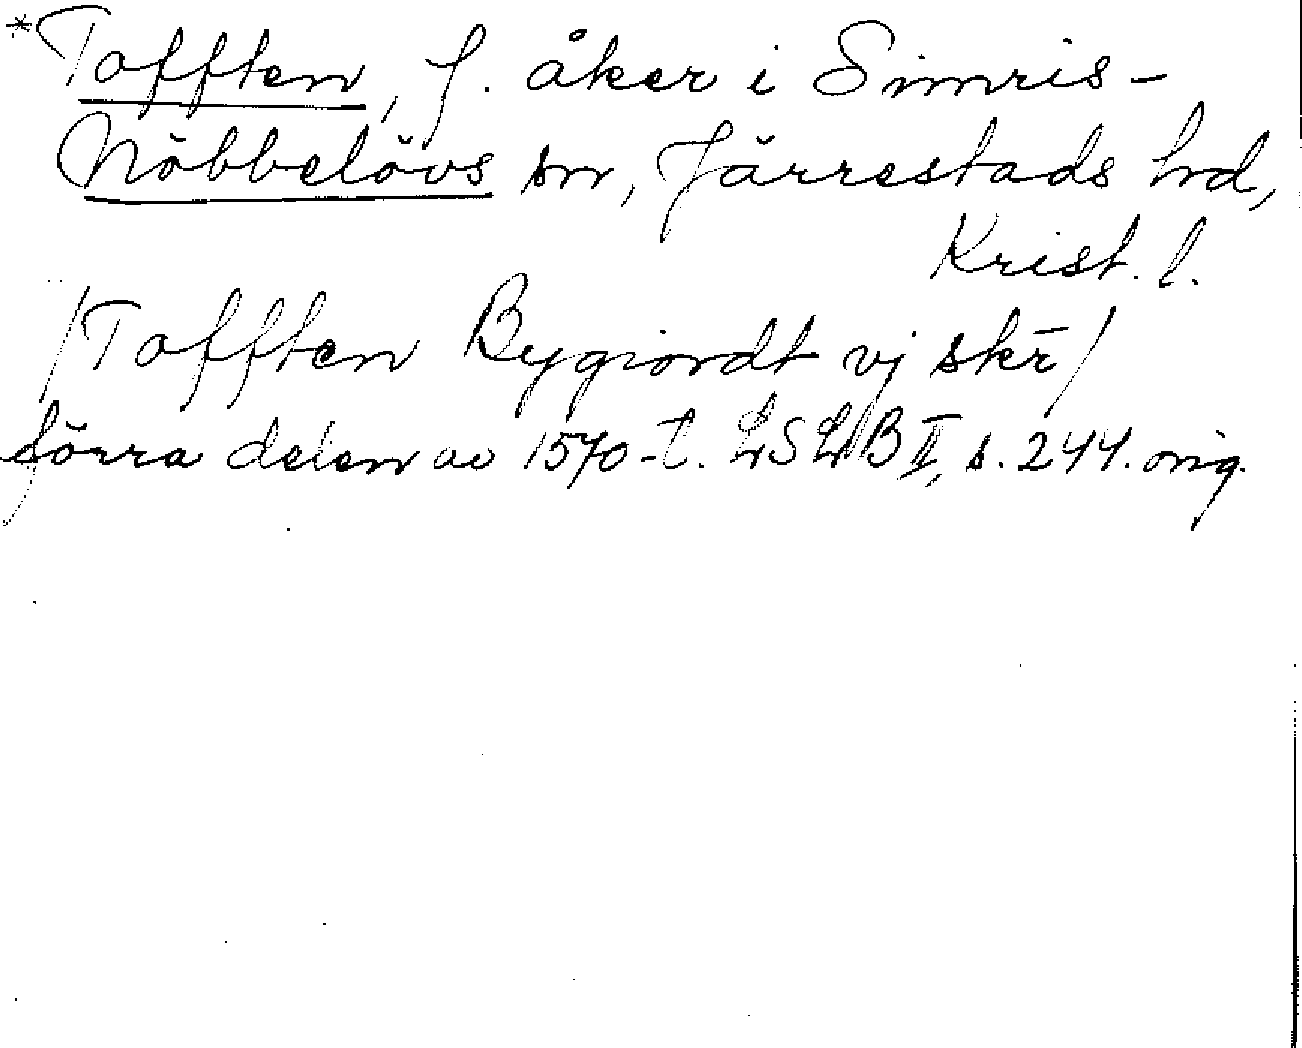 *Tofften, f. åker i Simris-
Nöbbelövs sn, Järrestads hd,
Krist. l.
/Tofften Bygiordt vj skr̄/
förra delen av 1570-t. LSLB II, s. 244. orig.